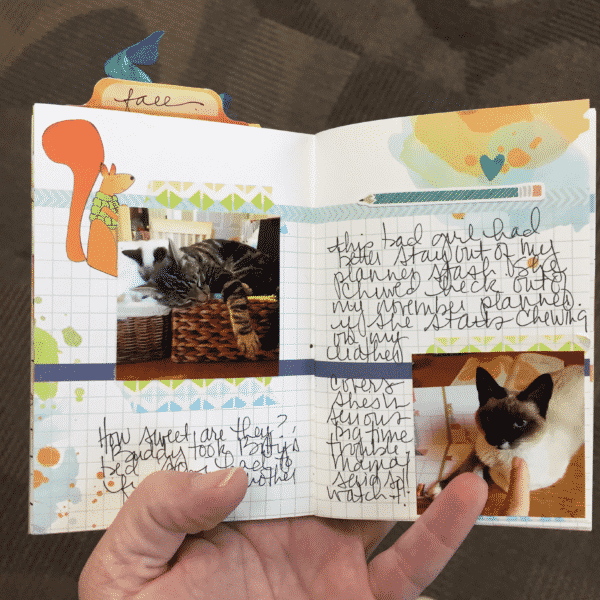 fall
How sweet are they?
Buddy took Bitty's
bed had to
another
this bad girl had
better stay out of my
planner stash. Isis
chewed heck out of
my november planner.
if she starts chewing
on my
covers
shes n
serious
big time
trouble.
mama
said so!
watch it!